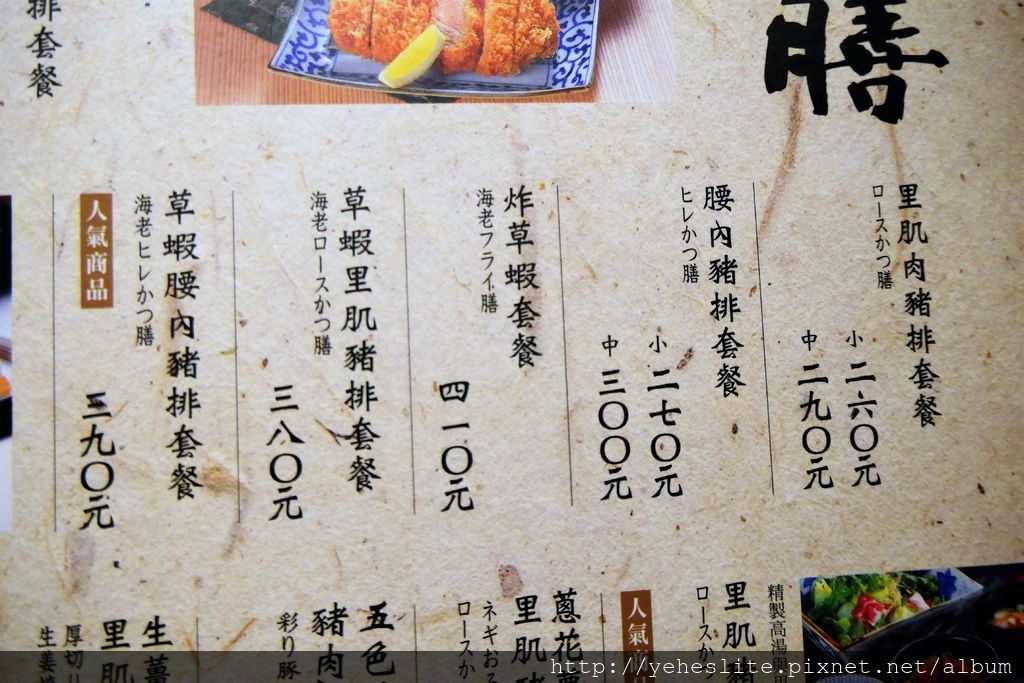 膳
里肌肉豬排套餐
ロースかつ膳
小 二六〇元
中 二九〇元
腰內豬排套餐
ヒレかつ膳
小 二七〇元
中 三〇〇元
炸草蝦套餐
海老フライ膳
四一〇元
草蝦里肌豬排套餐
海老ロースかつ膳
三八〇元
草蝦腰內豬排套餐
海老ヒレかつ膳
人氣商品
三九〇元
排套餐
精製高湯
里肌
ロースかつ
人氣商
蔥花
里肌
ネギおろ
ロースか
五色
豬肉
彩り豚
生薑
里肌
厚切り
生姜焼
http://yeheslite.pixnet.net/album